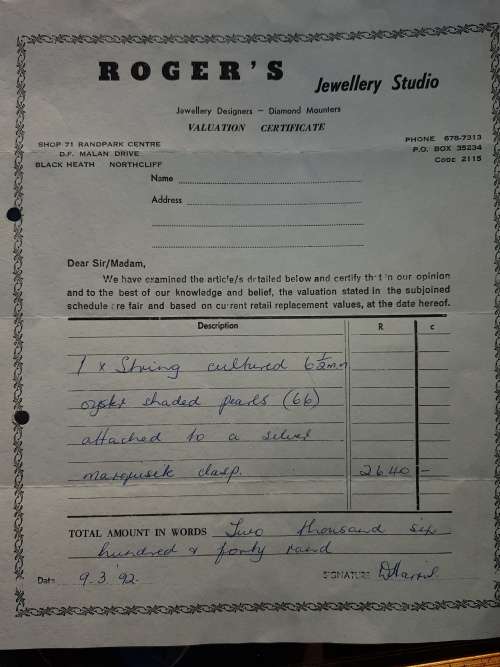 ROGER'S
Jewellery Studio
Jewellery Designers – Diamond Mounters
VALUATION CERTIFICATE
SHOP 71 RANDPARK CENTRE
D.F. MALAN DRIVE
BLACK HEATH NORTHCLIFF
PHONE 678-7313
P.O. BOX 35234
Code 2115
Name
Address
Dear Sir/Madam,
We have examined the article/s detailed below and certify that in our opinion
and to the best of our knowledge and belief, the valuation stated in the subjoined
schedule are fair and based on current retail replacement values, at the date hereof.
Description R c
1 x String cultured 6½mm
oyster shaded pearls (66)
attached to a silver
clasp. 2640 –
TOTAL AMOUNT IN WORDS Two thousand six
hundred & forty rand
Date 9.3.'92. SIGNATURE